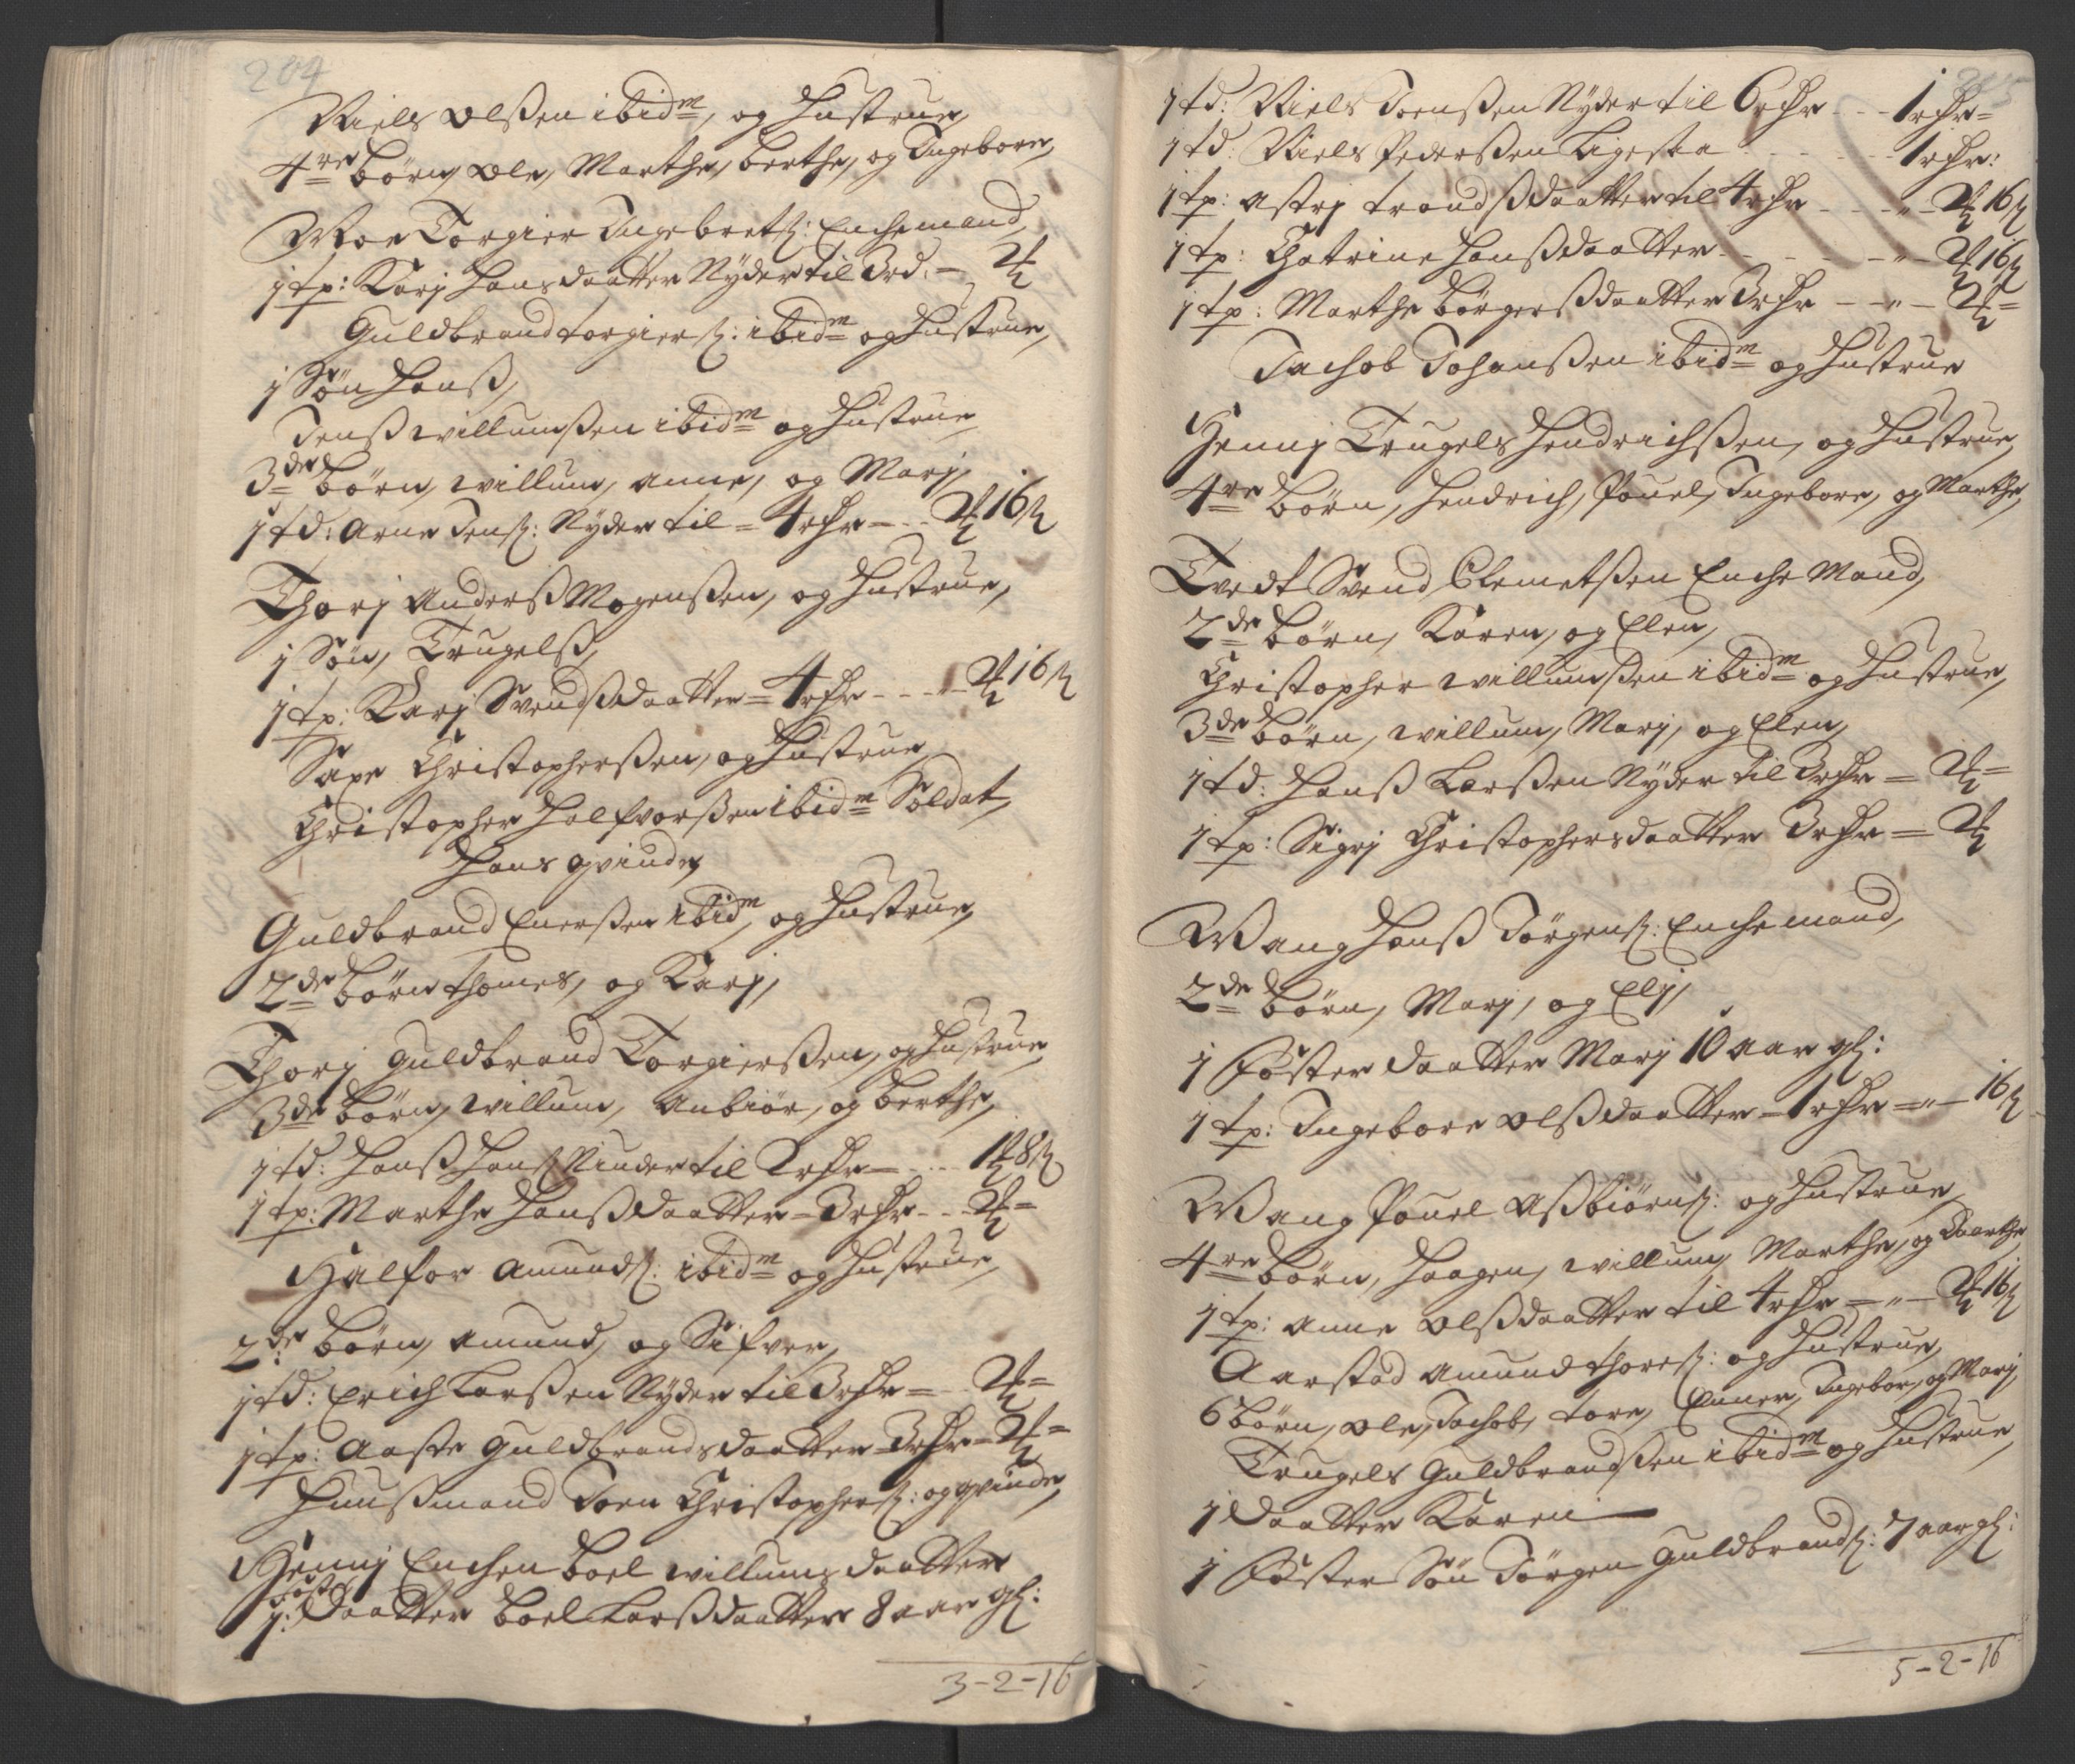 204
Niels Olßen ibidm, og Hustrue,
4re Børn, Ole, Marthe, Berthe, og Ingebore,
Moe Torgier Ingebretß: Enchemand,
1 tp: Karj Hansdaatter Nyder til 3rd: – 2
Guldbrand torgierß: ibidm og Hustrue,
1 Søn Hanß,
Jenß willumßen ibidm og Hustrue
3de Børn, willum, Anne, og Marj,
1 td: Arne Jenß: Nyder til = 4 rdr – 2 16 ß
Thorj Anderß Mogenßen, og Hustrue,
1 Søn, Trugelß,
1 tp: Karj Svendßdaatter = 4 rdr – 2 16 ß
Saxe Christopherßen, og Hustrue
Christopher Halfvorßen ibidm Soldat,
Hans qvinde,
Guldbrand Enerßen ibidm, og Hustrue,
2de Børn thomes, og Karj,
Thorj Guldbrand Torgierßen, og Hustrue,
3de Børn, willum, Anbiør, og Berthe,
1 td: Hanß Hanß Niuder til 2 rdr – 1 8 ß
1 tp: Marthe Hanßdaatter – 3 rdr – 2 =
Halfor Amundß: ibidm og Hustrue,
2de: Børn, Amund, og Sifver,
1 td: Erich Larßen Nyder til 3 rdr = 2 =
1 tp: Aaste Guldbrandsdaatter – 3 rdr – 2 =
Huußmand Joen Christopherß: og qvinde,
Hennj Enchen Boel willumsdaatter
Fost
1: daatter Boel Larßdaatter 8 aar gl:
3-2-16
205
1 td: Niels Joenßen Nyder til 6 rdr – 1 rdr =
1 td: Niels Pederßen Ligesaa – 1 rdr:
1 tp: Astrj trondßdaatter til 4 rdr – „ – 2 16 ß
1 tp: Chatrine Hanßdaatter – „ – 2 16 ß
1 tp: Marthe Børgerßdaatter 3 rdr – „ – 2 =
Jachob Johanßen ibidm og Hustrue
Hennj Trugels Hendrichßen, og Hustrue,
4re Børn, Hendrich, Pouel, Ingebore, og Marthe,
Tvedt Svend Clemetßen Enche Mand,
2de Børn, Karen, og Elen,
Christopher willumßen ibidm og Hustrue,
3de Børn, willum, Marj, og Elen,
1 td: Hanß Larßen Nyder til 3 rdr = 2 =
1 tp: Sigrj Christophersdaatter 3 rdr = 2
Wang Hanß Jørgenß: Enchemand,
2de Børn, Marj, og Elj,
1 Foster daatter Marj 10 aar gl:
1 tp: Ingebore Olßdaatter – 1 rdr = „ – 16 ß
Wang Pouel Aßbiørnß: og Hustrue
4re Børn, Haagen, willum, Marthe, og Dorthe
1 tp: Anne Olßdaatter til 4 rdr = „ – 2 16 ß
Aarstad Amund thoreß: og Hustrue,
6 Børn, Ole, Jachob, tore, Enner, Ingebor, og Marj,
Trugels Guldbrandßen ibidm og Hustrue,
1 daatter Karen
1 Foster Søn Jørgen Guldbrandß: 7 aar gl:
5-2-16